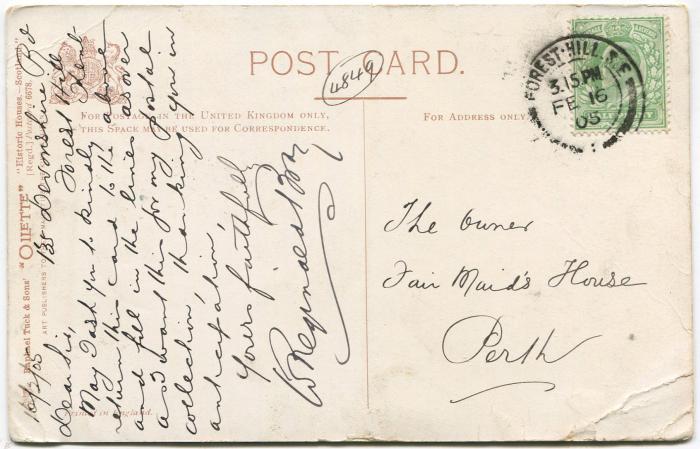 POST CARD.
4849
FOR POSTAGE IN THE UNITED KINGDOM ONLY,
THIS SPACE MAY BE USED FOR CORRESPONDENCE.
FOR ADDRESS ONLY.
FOREST-HILL S.E
3.15PM
FE 16
05
The Owner
Fair Maid's House
Perth
16/2/05
Devonshire Rd
Forest Hill
Dear Sir,
May I ask you to kindly
return this card to the above
and fill in the lines
as I want this for my postal
collection, thanking you in
anticipation,
Yours faithfully
W Reginald Bray
Raphael Tuck & Sons' "OILETTE" "Historic Houses—Scotland"
[Regd.] Postcard 6678.
ART PUBLISHERS TO
Printed in England.